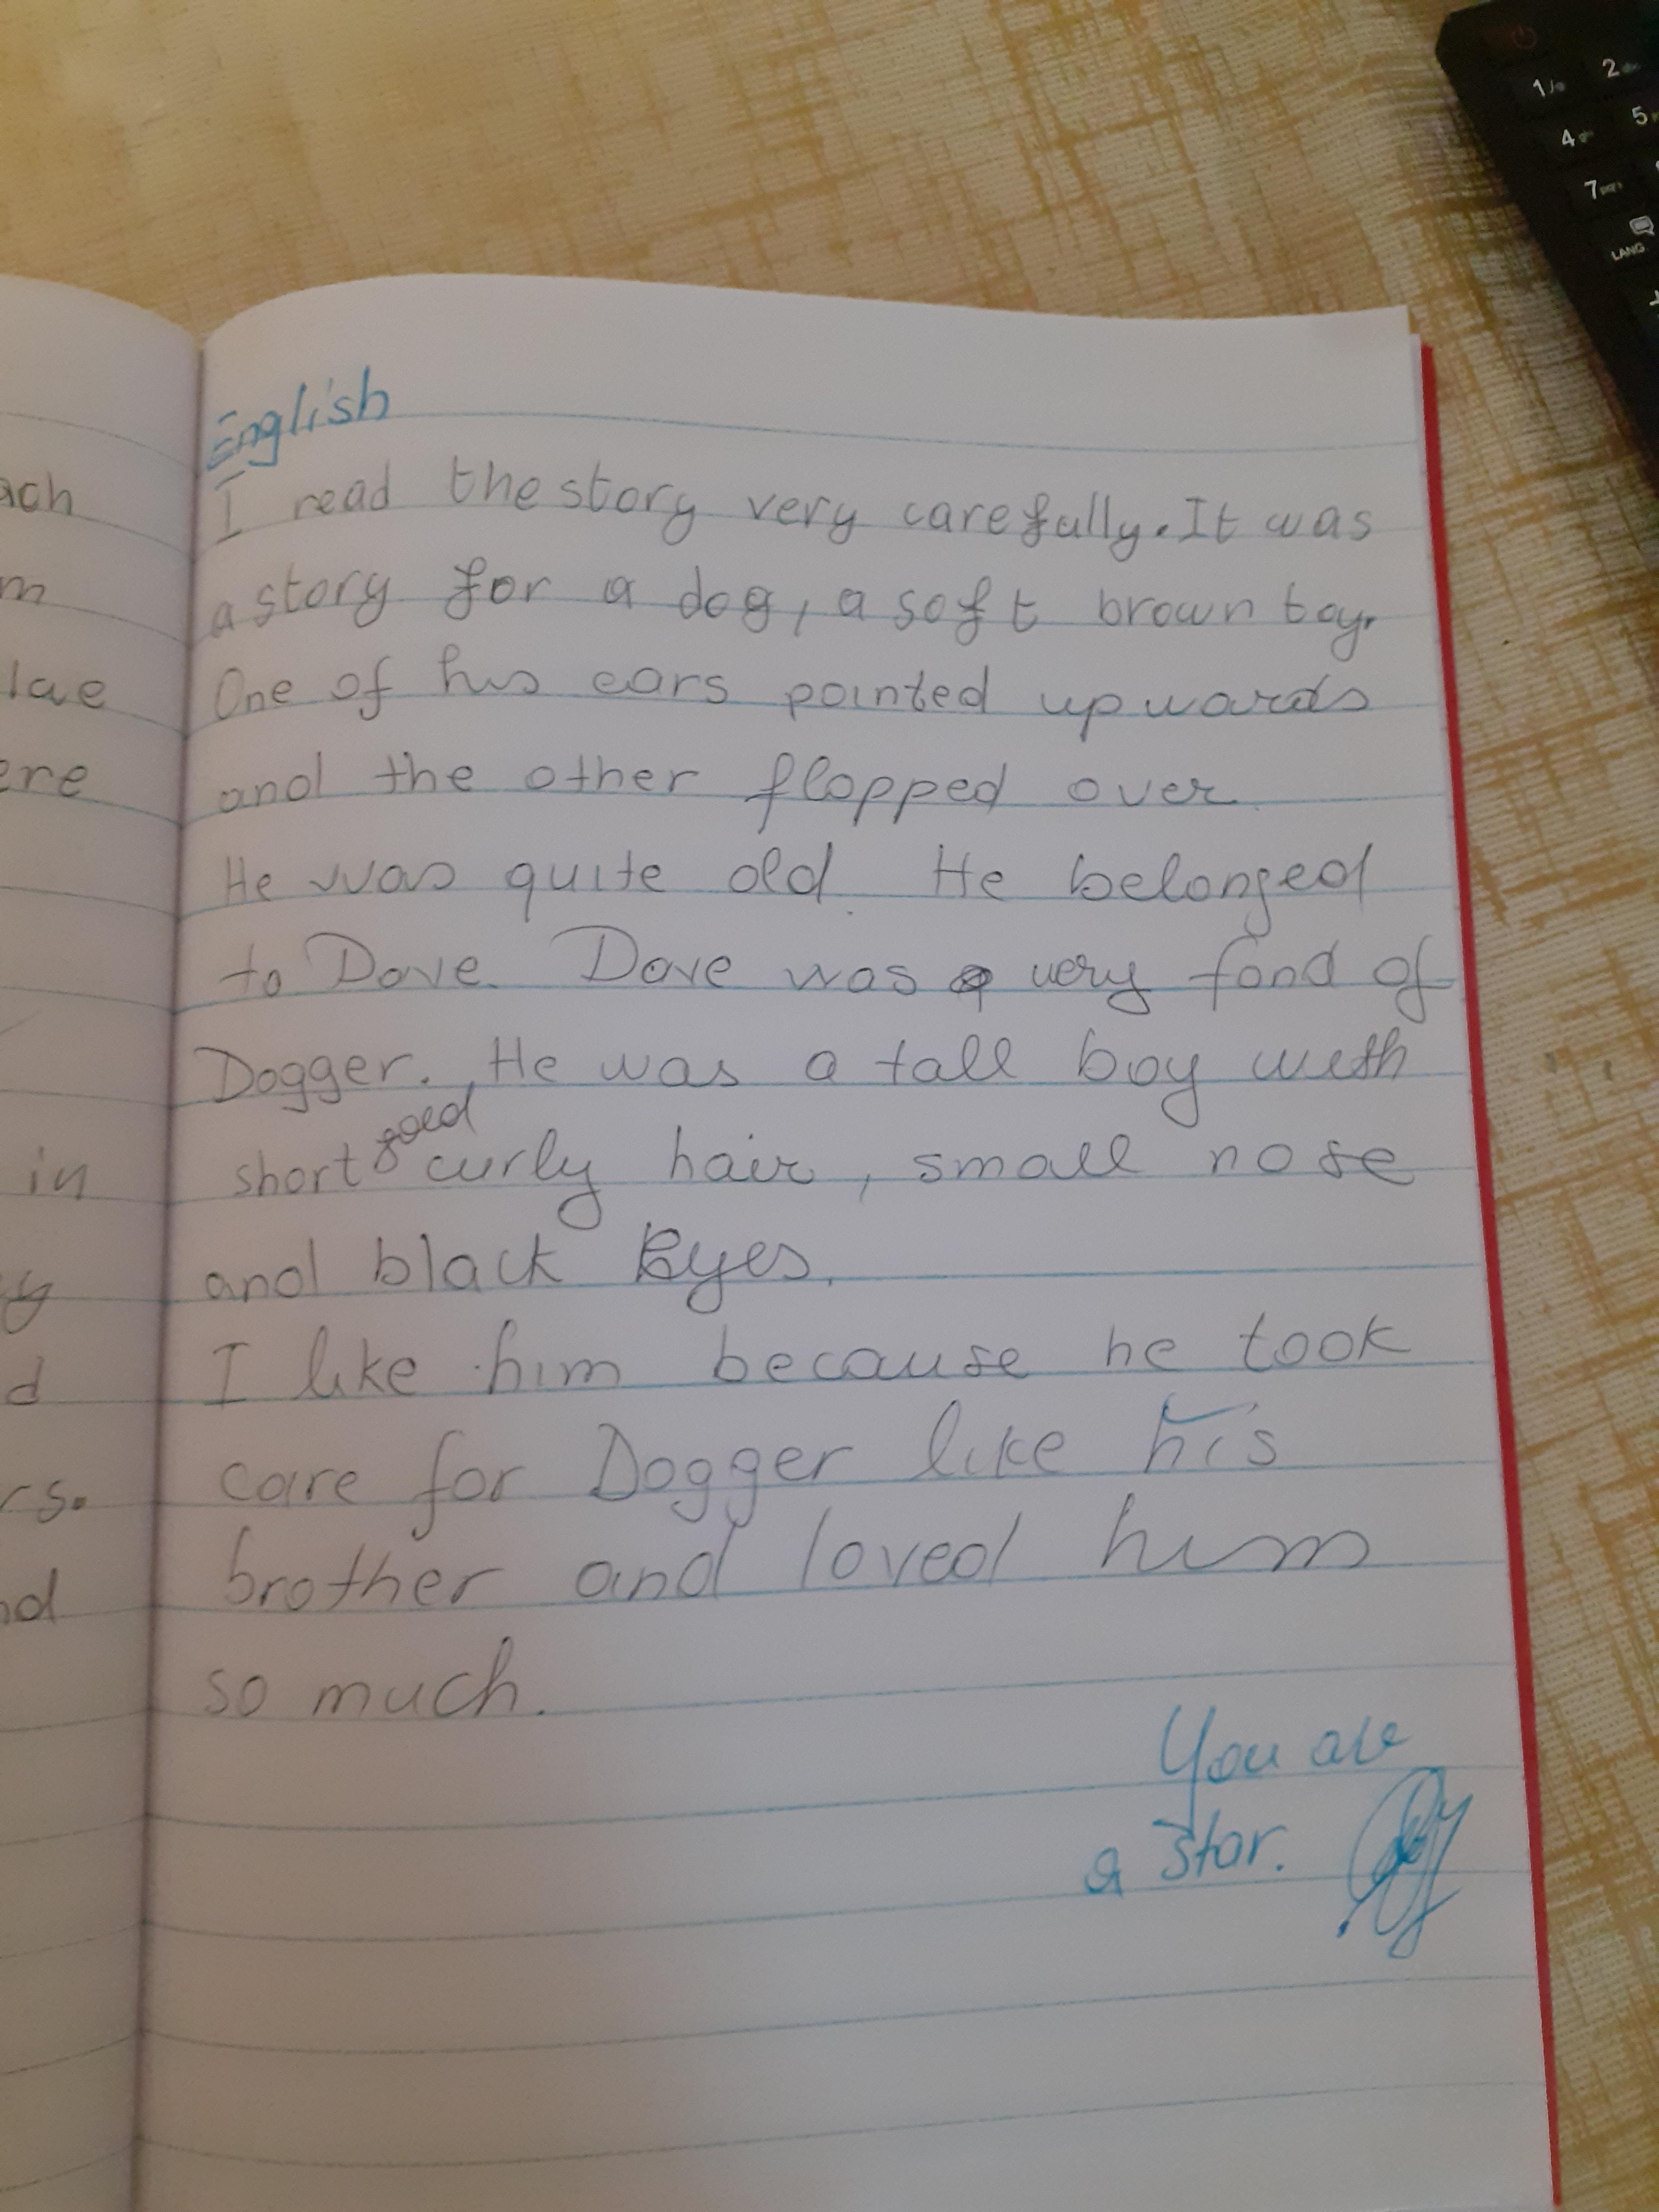 English
I read the story very carefully. It was
a story for a dog, a soft brown toy.
One of his ears pointed upwards
and the other flopped over.
He was quite old. He belonged
to Dave. Dave was very fond of
Dogger. He was a tall boy with
short gold curly hair, small nose
and black Eyes.
I like him because he took
care for Dogger like his
brother and loved him
so much.
You are
a star.
ach
m
lae
ere
in
y
d
rs.
nd
1
2
4
5
7
LANG